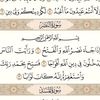 وَلَآ أَنتُمْ عَٰبِدُونَ مَآ أَعْبُدُ ۝ لَكُمْ دِينُكُمْ وَلِىَ دِينِ ۝
سُورَةُ النَّصْرِ
بِسْمِ ٱللَّهِ ٱلرَّحْمَٰنِ ٱلرَّحِيمِ
إِذَا جَآءَ نَصْرُ ٱللَّهِ وَٱلْفَتْحُ ۝ وَرَأَيْتَ ٱلنَّاسَ
يَدْخُلُونَ فِى دِينِ ٱللَّهِ أَفْوَاجًا ۝ فَسَبِّحْ بِحَمْدِ رَبِّكَ
وَٱسْتَغْفِرْهُ إِنَّهُۥ كَانَ تَوَّابًۢا ۝